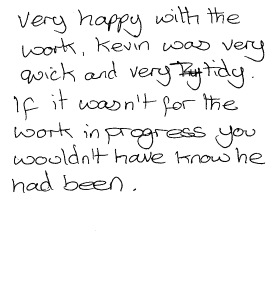 very happy with the
work, Kevin was very
quick and very tidy.
If it wasn't for the
work in progress you
wouldn't have know he
had been.